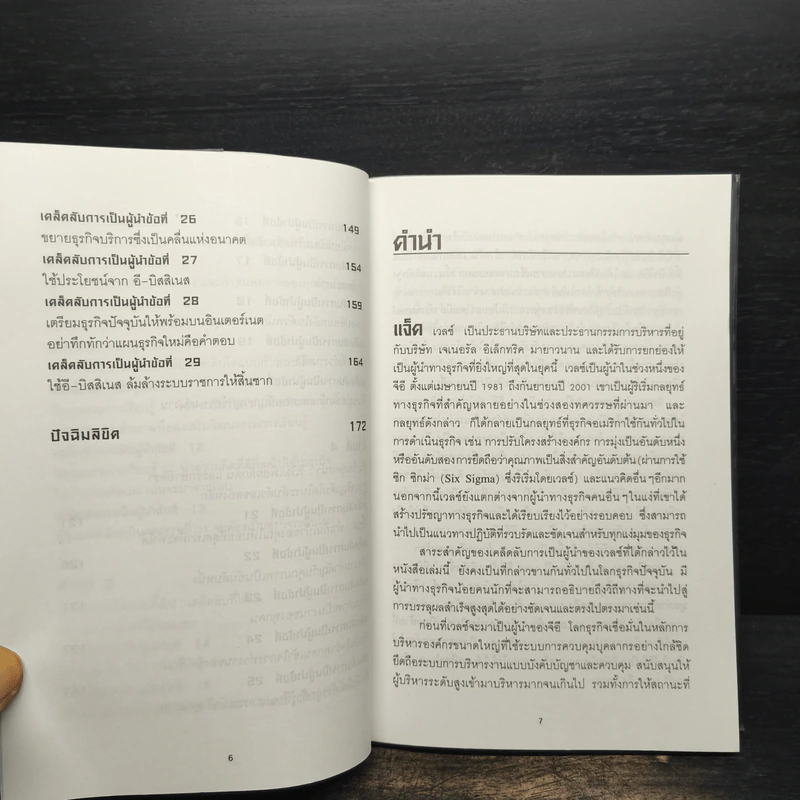 เคล็ดลับการเป็นผู้นำข้อที่ 26
ขยายธุรกิจบริการซึ่งเป็นคลื่นแห่งอนาคต 149
เคล็ดลับการเป็นผู้นำข้อที่ 27
ใช้ประโยชน์จาก อี-บิสสิเนส 154
เคล็ดลับการเป็นผู้นำข้อที่ 28
เตรียมธุรกิจปัจจุบันให้พร้อมบนอินเตอร์เนต 159
อย่าทึกทักว่าแผนธุรกิจใหม่คือคำตอบ
เคล็ดลับการเป็นผู้นำข้อที่ 29
ใช้อี-บิสสิเนส ล้มล้างระบบราชการให้สิ้นซาก 164
ปัจฉิมลิขิต 172
6
คำนำ
แจ็ค เวลช์ เป็นประธานบริษัทและประธานกรรมการบริหารที่อยู่
กับบริษัท เจเนอรัล อิเล็กทริค มายาวนาน และได้รับการยกย่องให้
เป็นผู้นำทางธุรกิจที่ยิ่งใหญ่ที่สุดในยุคนี้ เวลช์เป็นผู้นำในช่วงหนึ่งของ
จีอี ตั้งแต่เมษายนปี 1981 ถึงกันยายนปี 2001 เขาเป็นผู้ริเริ่มกลยุทธ์
ทางธุรกิจที่สำคัญหลายอย่างในช่วงสองทศวรรษที่ผ่านมา และ
กลยุทธ์ดังกล่าว ก็ได้กลายเป็นกลยุทธ์ที่ธุรกิจอเมริกาใช้กันทั่วไปใน
การดำเนินธุรกิจ เช่น การปรับโครงสร้างองค์กร การมุ่งเป็นอันดับหนึ่ง
หรืออันดับสองการยึดถือว่าคุณภาพเป็นสิ่งสำคัญอันดับต้น (ผ่านการใช้
ซิก ซิกม่า (Six Sigma) ซึ่งริเริ่มโดยเวลช์) และแนวคิดอื่นๆอีกมาก
นอกจากนี้เวลช์ยังแตกต่างจากผู้นำทางธุรกิจคนอื่นๆในแง่ที่เขาได้
สร้างปรัชญาทางธุรกิจและได้เรียบเรียงไว้อย่างรอบคอบ ซึ่งสามารถ
นำไปเป็นแนวทางปฏิบัติที่รวบรัดและชัดเจนสำหรับทุกแง่มุมของธุรกิจ
สาระสำคัญของเคล็ดลับการเป็นผู้นำของเวลช์ที่ได้กล่าวไว้ใน
หนังสือเล่มนี้ ยังคงเป็นที่กล่าวขานกันทั่วไปในโลกธุรกิจปัจจุบัน มี
ผู้นำทางธุรกิจน้อยคนนักที่จะสามารถอธิบายถึงวิถีทางที่จะนำไปสู่
การบรรลุผลสำเร็จสูงสุดได้อย่างชัดเจนและตรงไปตรงมาเช่นนี้
ก่อนที่เวลช์จะมาเป็นผู้นำของจีอี โลกธุรกิจเชื่อมั่นในหลักการ
บริหารองค์กรขนาดใหญ่ที่ใช้ระบบการควบคุมบุคลากรอย่างใกล้ชิด
ยึดถือระบบการบริหารงานแบบบังคับบัญชาและควบคุม สนับสนุนให้
ผู้บริหารระดับสูงเข้ามาบริหารมากจนเกินไป รวมทั้งการให้สถานะที่
7